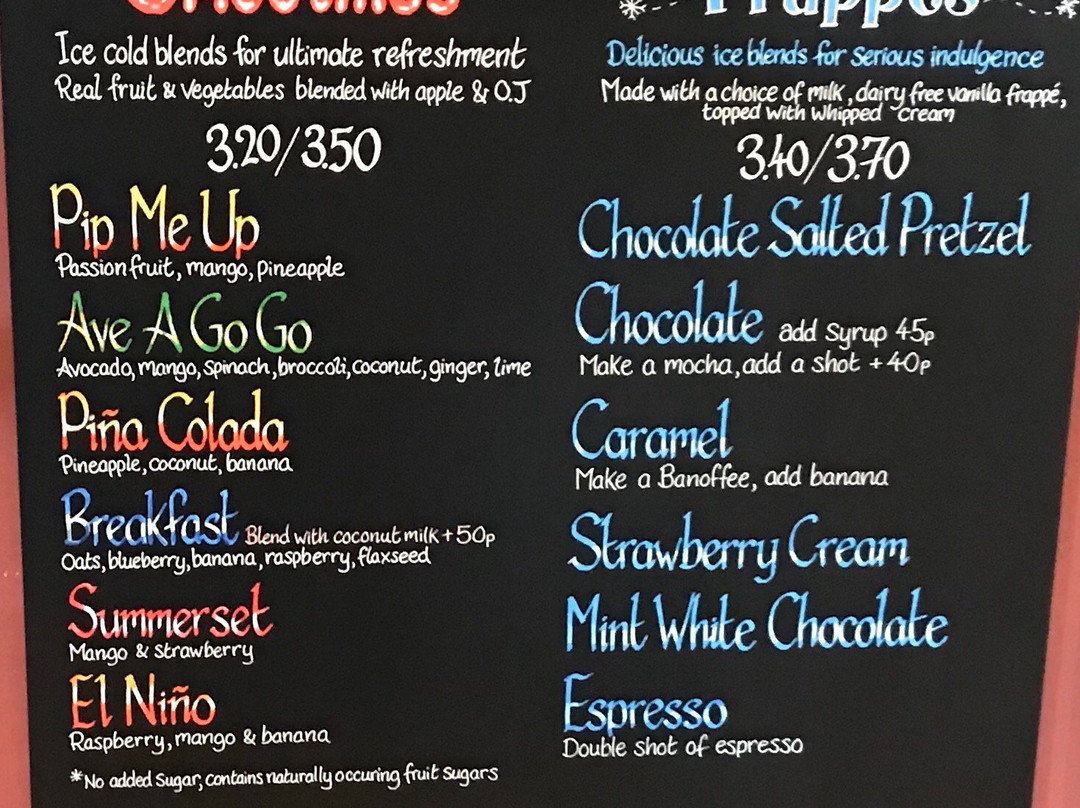 Smoothies
Ice cold blends for ultimate refreshment
Real fruit & vegetables blended with apple & O.J
3.20/3.50
Pip Me Up
Passion fruit, mango, pineapple
Ave A Go Go
Avocado, mango, spinach, broccoli, coconut, ginger, lime
Piña Colada
Pineapple, coconut, banana
Breakfast Blend with coconut milk + 50p
Oats, blueberry, banana, raspberry, flaxseed
Summerset
Mango & strawberry
El Niño
Raspberry, mango & banana
*No added sugar, contains naturally occuring fruit sugars
Frappés
Delicious ice blends for serious indulgence
Made with a choice of milk, dairy free vanilla frappé,
topped with whipped cream
3.40/3.70
Chocolate Salted Pretzel
Chocolate add syrup 45p
Make a mocha, add a shot + 40p
Caramel
Make a Banoffee, add banana
Strawberry Cream
Mint White Chocolate
Espresso
Double shot of espresso